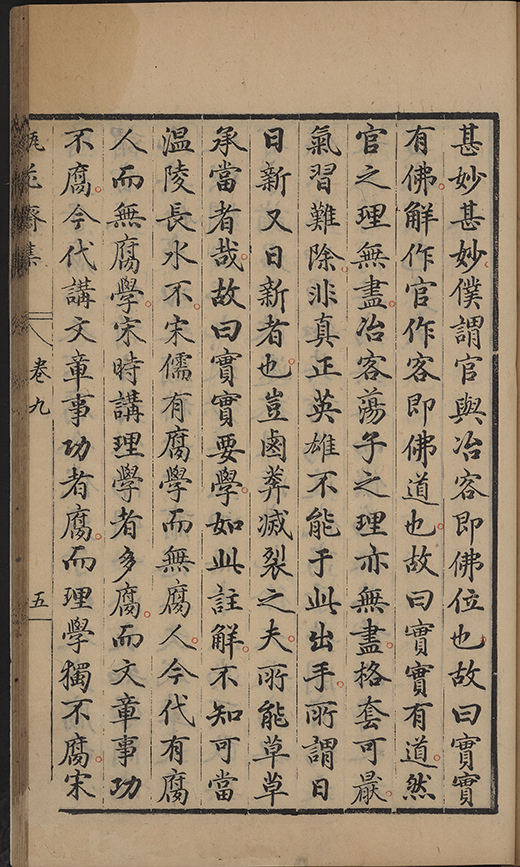 甚妙甚妙僕謂官與冶客即佛位也故曰實實
有佛解作官作客即佛道也故曰實實有道然
官之理無盡冶客蕩子之理亦無盡格套可厭
氣習難除非真正英雄不能于此出手所謂日
日新又日新者也豈鹵莽滅裂之夫所能草草
承當者哉故曰實實要學如此註解不知可當
温陵長水不宋儒有腐學而無腐人今代有腐
人而無腐學宋時講理學者多腐而文章事功
不腐今代講文章事功者腐而理學獨不腐宋
花齋集
卷九
五